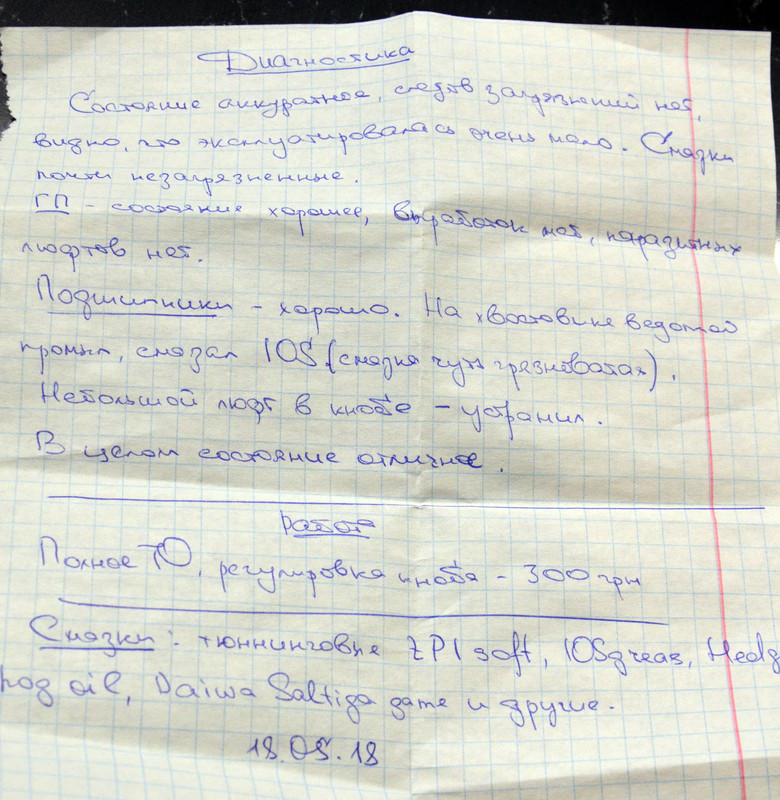 Диагностика
Состояние аккуратное, следов загрязнений нет,
видно, что эксплуатировалась очень мало. Смазки
почти незагрязненные.
ГП - состояние хорошее, выработок нет, паразитных
люфтов нет.
Подшипники - хорошо. На хвостовике ведомой
промыл, смазал IOS (смазка чуть грязноватая).
Небольшой люфт в кнобе - устранил.
В целом состояние отличное.
Работа
Полное ТО, регулировка кноба - 300 грн
Смазки: тюннинговые ZPI soft, IOSgreas, Hedg
hog oil, Daiwa Saltiga game и другие.
18.05.18